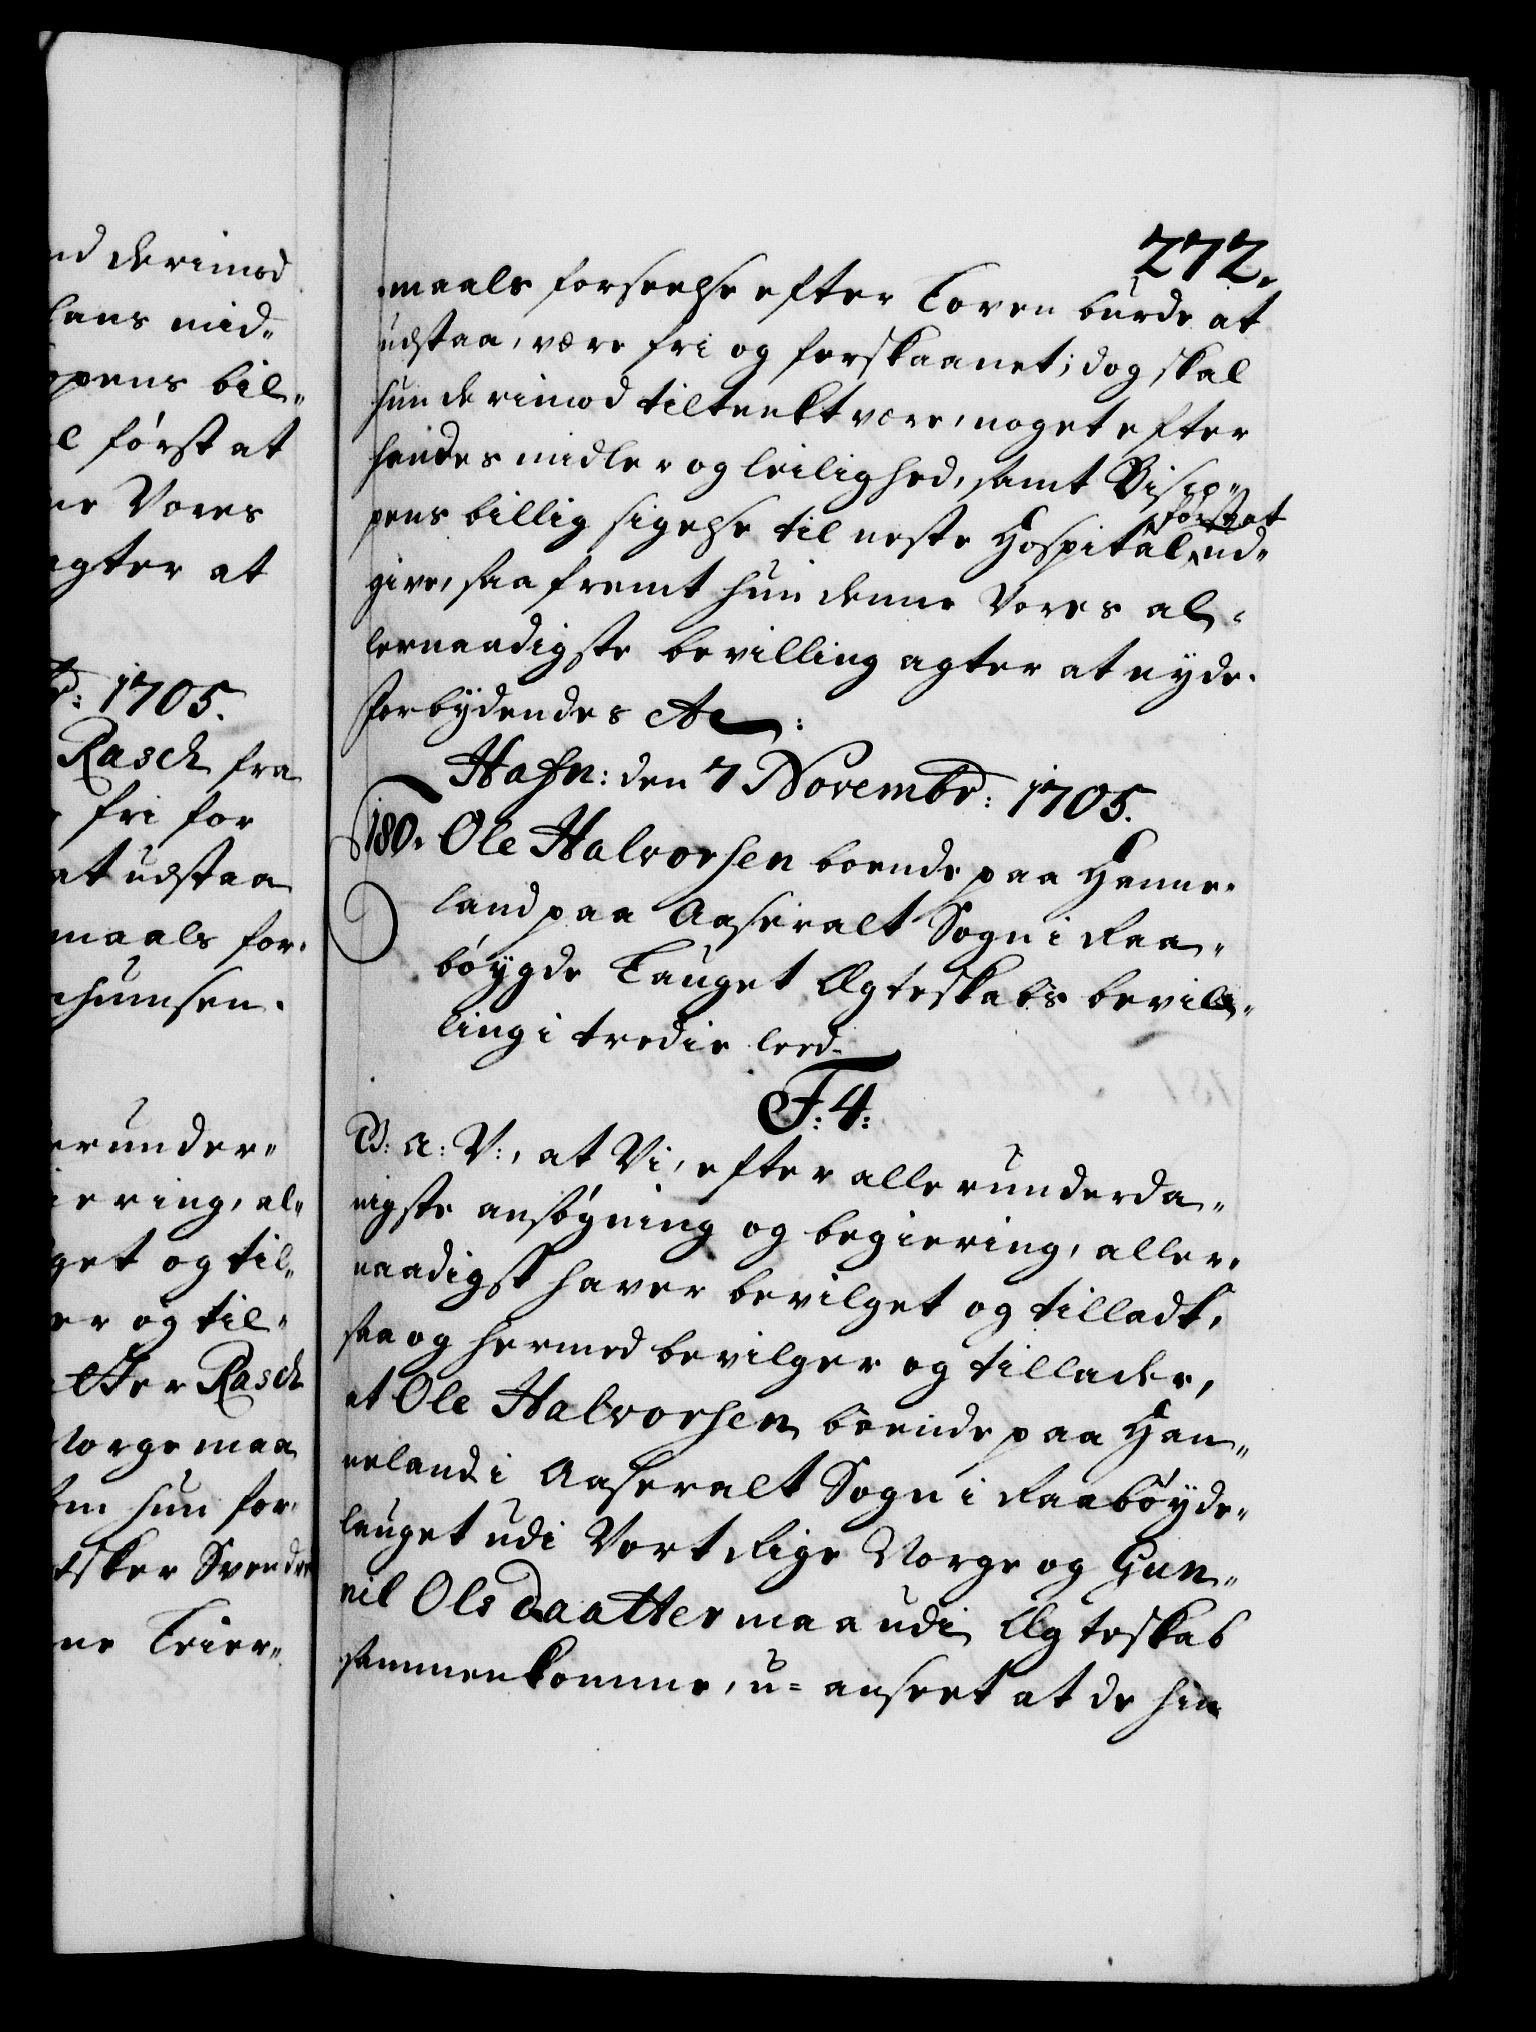 nd derimod
hans mid„
ppens bil„
l först at
ne Vores
agter at
br: 1705.
Rasch fra
fri for
at udstaa
maals for„
chumsen.
erunder„
iering, al„
get og til„
er og til„
etter Rasch
Norge maa
hun for„
idsker Svendsen
ne Leier„
272.
maals forseelse efter Loven burde at
udstaa, være fri og forskaanet; dog skal
hun derimod tiltenkt være, noget efter
hendes midler og leilighed, samt Bisp„
pens billig sigelse til neste Hospital först at ud„
give, saa fremt hun denne Vores al„
lernaadigste bevilling agter at nyde.
Forbydendes etc:
Hafn: den 7 Novembr: 1705.
180. Ole Halvorsen boende paa Hanne„
land paa Aaseralt Sogn i Raa„
böygde Lauget Ægteskabs bevil„
ling i tredie leed.
F: 4:
G: A: V:, at Vi, efter allerunderda„
nigste ansögning og begiering, aller„
naadigst haver bevilget og tilladt,
saa og hermed bevilger og tillader,
at Ole Halvorsen boende paa Han„
neland i Aaseralt Sogn i Raaböyde„
lauget udi Vort Rige Norge og Gun„
nil Ols Daatter maa udi Ægteskab
sammenkomme, u= anseet at de hin